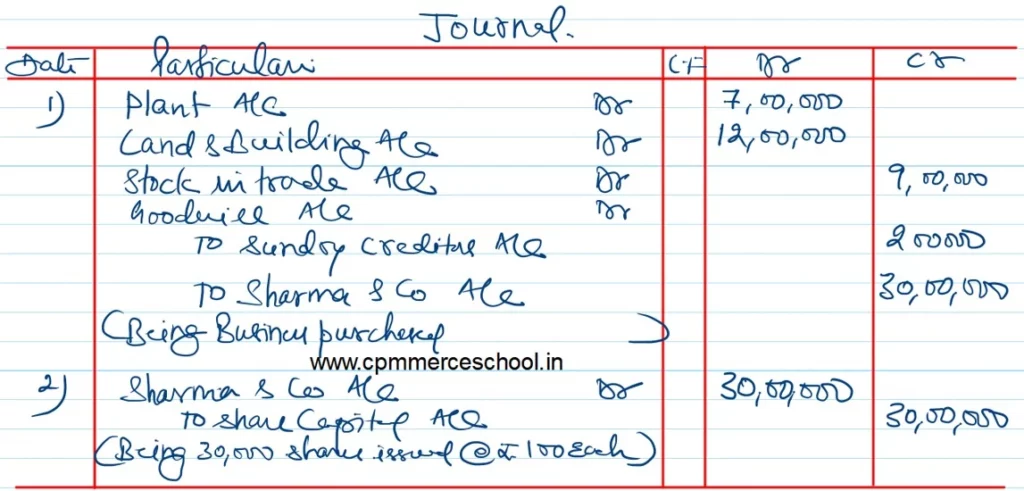 Journal.
Date Particulars L.F Dr Cr
1) Plant A/C Dr 7,00,000
Land & Building A/c Dr 12,00,000
Stock in trade A/c Dr 9,00,000
Goodwill A/c Dr
To Sundry Creditors A/c 200000
To Sharma & Co A/c 30,00,000
(Being Business purchased)
www.cpmmerceschool.in
2) Sharma & Co A/c Dr 30,00,000
To Share Capital A/c 30,00,000
(Being 30,000 shares issued @ ₹ 100 Each)